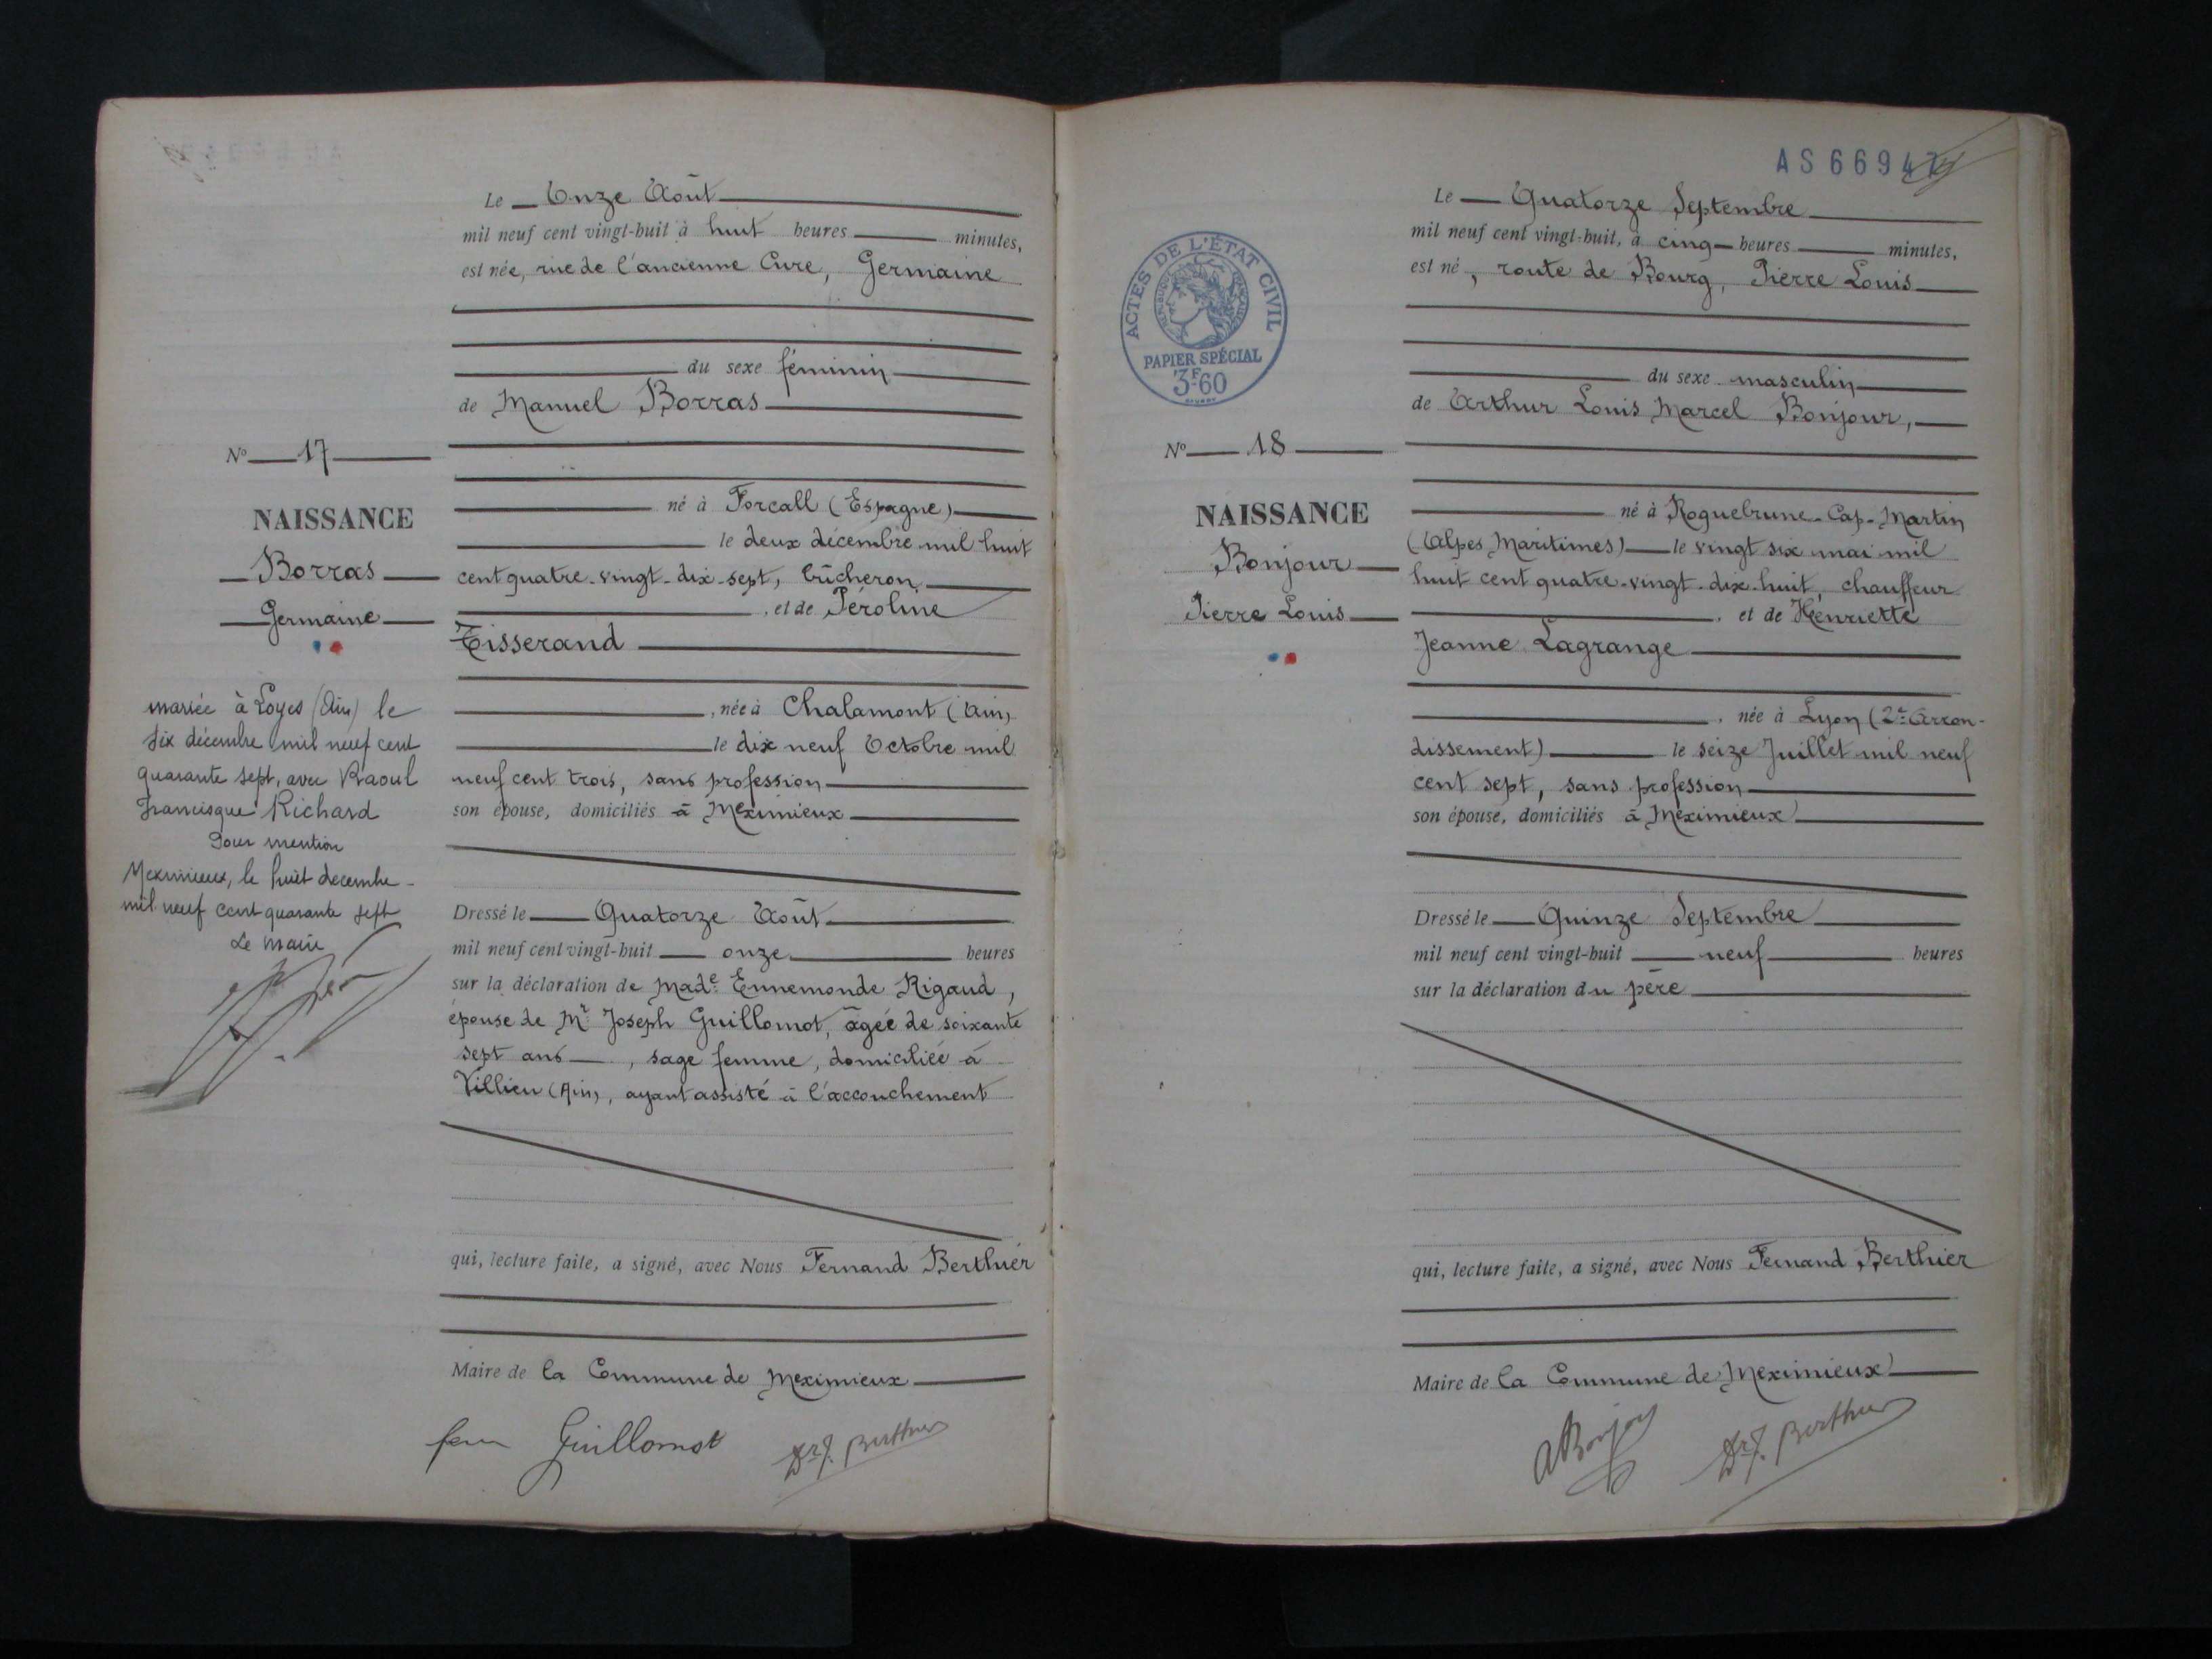 Le Onze Août
mil neuf cent vingt-huit à huit heures minutes,
est née, rue de l'ancienne Cure, Germaine
du sexe féminin
de Manuel Borras
né à Forcall (Espagne)
le deux décembre mil huit
cent quatre-vingt-dix-sept, bûcheron
, et de Péroline
Tisserand
, née à Chalamont (Ain)
le dix neuf Octobre mil
neuf cent trois, sans profession
son épouse, domiciliés à Meximieux
Dressé le Quatorze Août
mil neuf cent vingt-huit onze heures
sur la déclaration de Made Ennemonde Rigaud,
épouse de Mr Joseph Guillomot, âgée de soixante
sept ans, sage femme, domiciliée à
Villieu (Ain), ayant assisté à l'accouchement
qui, lecture faite, a signé, avec Nous Fernand Berthier
Maire de la Commune de Meximieux
Guillomot
Dr F. Berthier
No 17
NAISSANCE
Borras
Germaine
mariée à Loyes (Ain) le
six décembre mil neuf cent
quarante sept, avec Raoul
Francisque Richard
Pour mention
Meximieux, le huit decembre
mil neuf cent quarante sept
Le Maire
AS 6694
ACTES DE L'ÉTAT CIVIL
RÉPUBLIQUE FRANÇAISE
PAPIER SPÉCIAL
3F60
No 18
NAISSANCE
Bonjour
Pierre Louis
Le Quatorze Septembre
mil neuf cent vingt-huit, à cinq heures minutes,
est né, route de Bourg, Pierre Louis
du sexe masculin
de Arthur Louis Marcel Bonjour,
né à Roquebrune-Cap-Martin
(Alpes Maritimes) le vingt six mai mil
huit cent quatre-vingt-dix-huit, chauffeur
, et de Henriette
Jeanne Lagrange
, née à Lyon (2e Arron-
dissement) le seize Juillet mil neuf
cent sept, sans profession
son épouse, domiciliés à Meximieux
Dressé le Quinze Septembre
mil neuf cent vingt-huit neuf heures
sur la déclaration du père
qui, lecture faite, a signé, avec Nous Fernand Berthier
Maire de la Commune de Meximieux
ABonjour
Dr F. Berthier